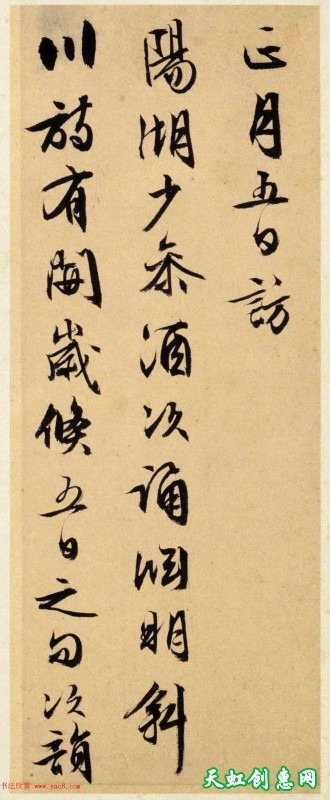 正月五日訪
陽湖少參酒次誦淵明斜
川詩有開歲倏五日之句次韻
书法欣赏 www.yac8.com
天虹创惠网